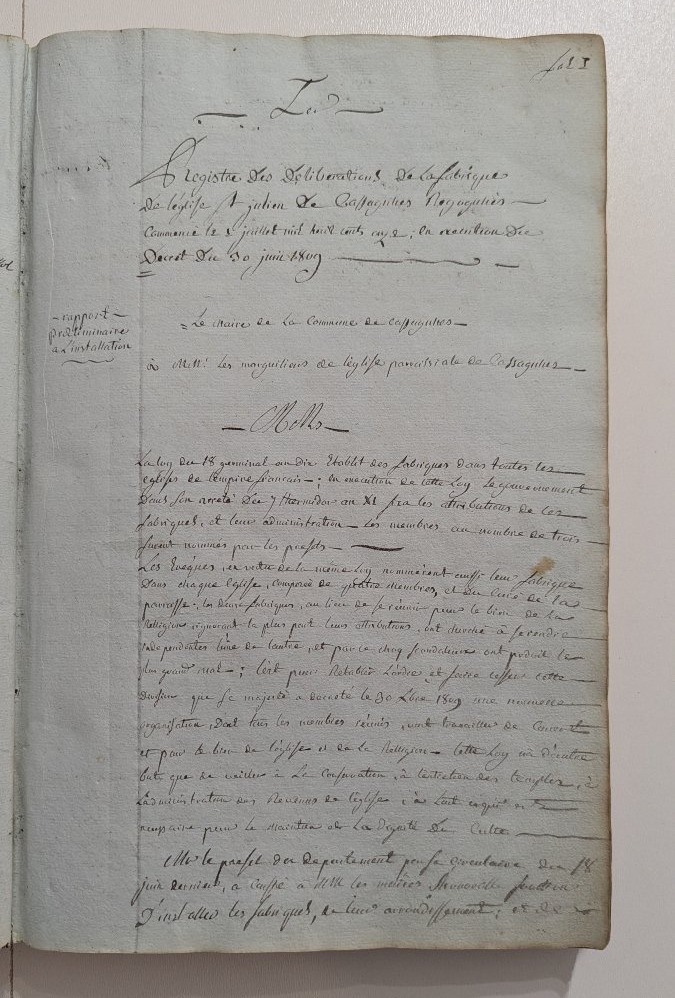 fol 1
Registre des deliberations de la fabrique
de leglise st julien de Cassagnles Begognhes
Commencé le juillet mil huit cents onze ; en execution du
Decret du 30 juin 1809
rapport
preliminaire
a L'installation
Le maire de La Commune de Cassagnhes
à M.M. Les marguilliers de léglise paroissiale de Cassagnhes
MMrs
La loy du 18 germinal an dix Etablit des fabriques dans toutes les
eglises de lempire francais ; en execution de cette Loy Le gouvernement
dans son arreté du 7 thermidor an XI fixa les attributions de ces
fabriques, et leur administration Les membres au nombre de trois
furent nommés par les prefets
Les Evéques, en vertu de la même loy nommèrent aussi leur fabrique
Dans chaque Eglise, composée de quatre membres, et du curé de la
paroisse, les deux fabriques, au lieu de se réunir pour le bien de la
Religion, ignorant la plus part leurs attributions, ont cherché à se rendre
independentes lune de lautre, et par ce choq scandaleux ont produit le
plus grand mal ; C'est pour Retablir L'ordre et faire cesser cette
division que sa majesté a decreté le 30 Xbre 1809 une nouvelle
organisation, Dont tous les membres réunis, vont travailler de Concert
et pour le bien de l'église et de la Religion cette Loy na d'autre
but que de veiller à La Conservation, à l'entretien des temples, à
L'administration des Revenus de l'église et à tout ce qui est
necessaire pour le maintien et La Dignité du Culte
Mr le prefet du departement par sa circulaire du 18
juin dernier, a confié à MM les maires honorable fonction
D'installer les fabriques, de leur arrondissement ; et de